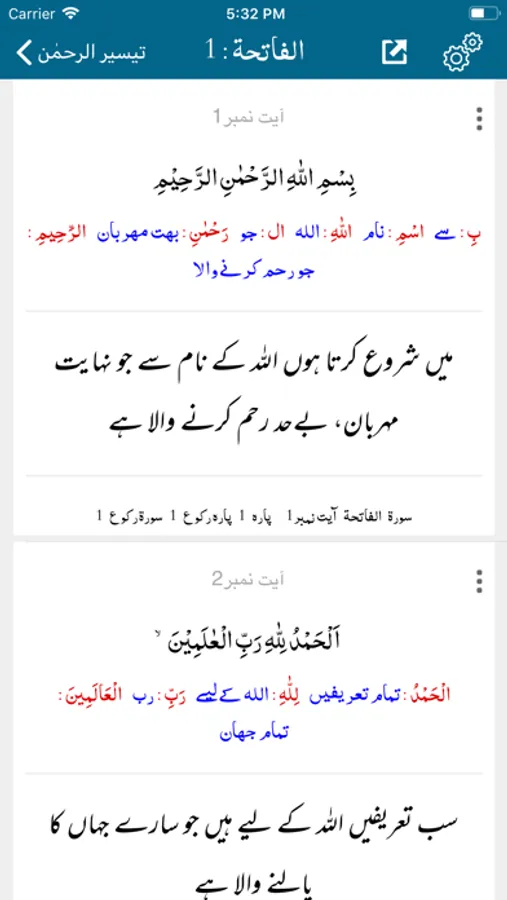 Carrier 5:32 PM
تیسیر الرحمٰن الفاتحة : 1
آیت نمبر 1
بِسْمِ اللّٰهِ الرَّحْمٰنِ الرَّحِيْمِ
بِ: سے اسْمِ: نام اللّٰهِ: الله ال: جو رَحْمٰنِ: بهت مهربان الرَّحِيمِ:
جو رحم كرنے والا
میں شروع کرتا ہوں اللہ کے نام سے جو نہایت
مہربان، بےحد رحم کرنے والا ہے
سورۃ الفاتحۃ آیت نمبر 1 پارہ 1 پارہ رکوع 1 سورۃ رکوع 1
آیت نمبر 2
اَلْحَمْدُ لِلّٰهِ رَبِّ الْعٰلَمِيْنَ ۙ
الْحَمْدُ: تمام تعریفیں لِلّٰهِ: الله كے ليے رَبِّ: رب الْعَالَمِينَ:
تمام جهان
سب تعریفیں اللہ کے لیے ہیں جو سارے جہاں کا
پالنے والا ہے